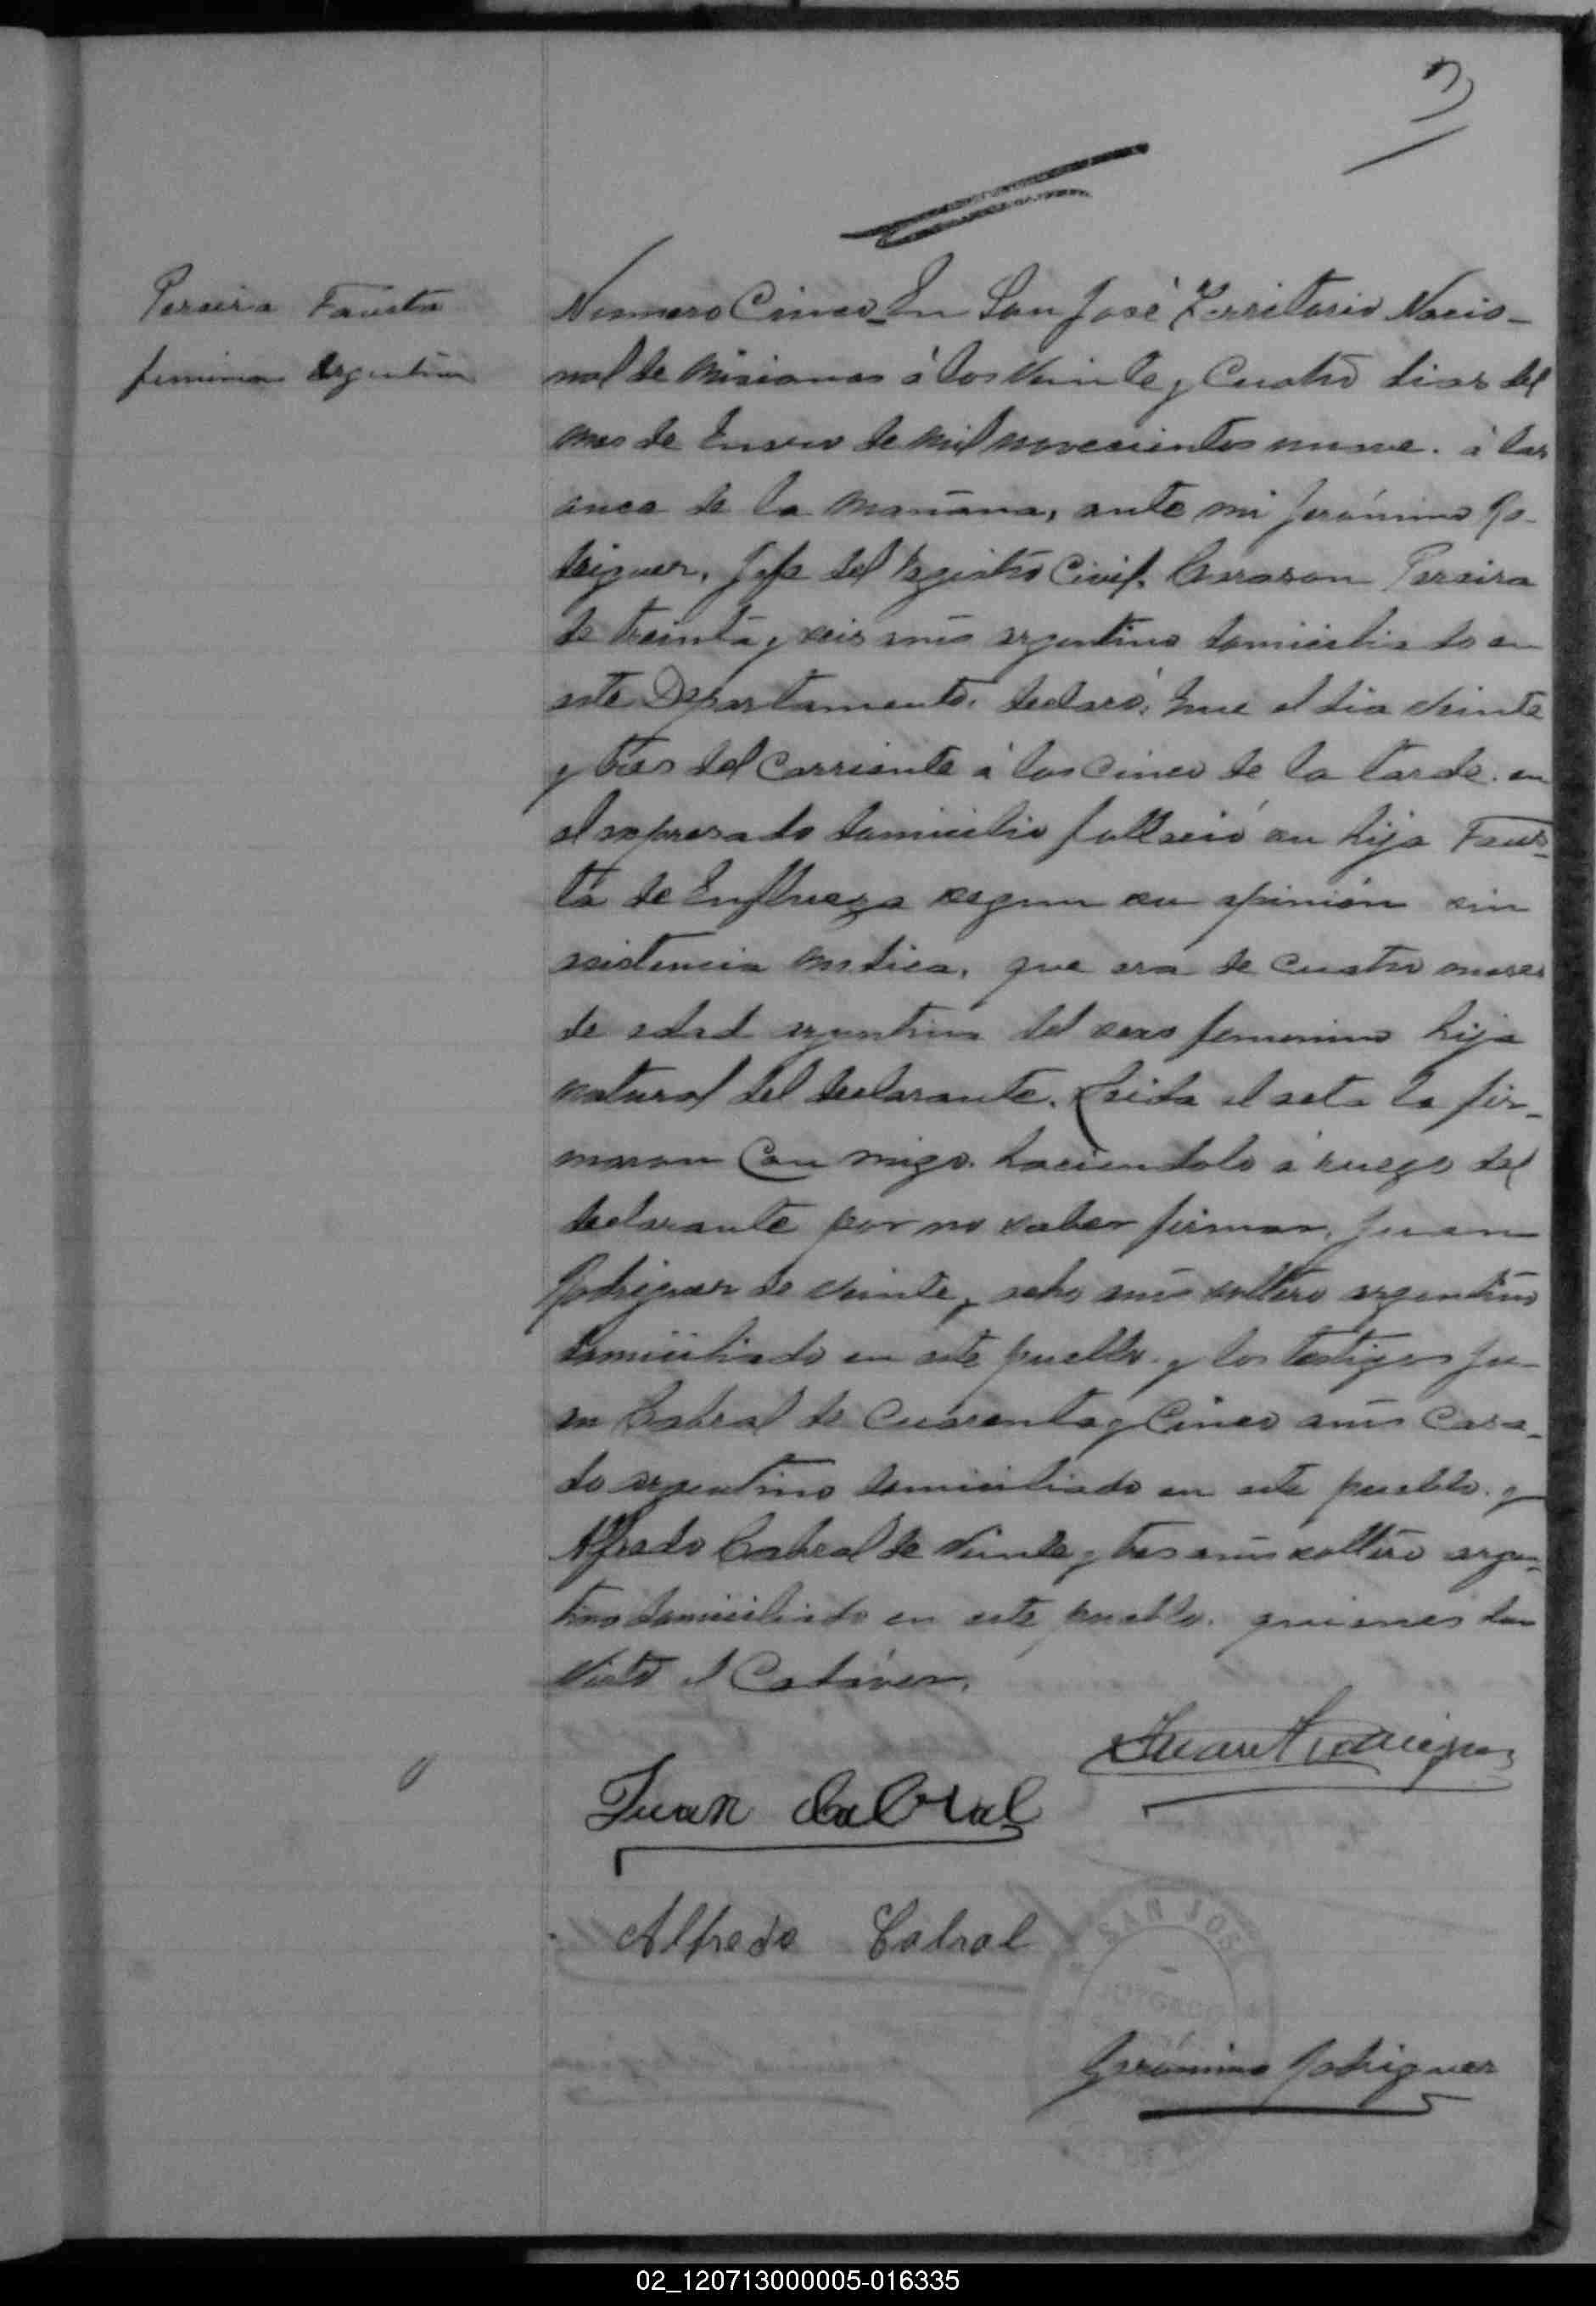 3
Pereira Fausta
femenina Argentina
Numero Cinco En San José Territorio Nacio-
nal de Misiones á los veinte y Cuatro dias del
mes de Enero de mil novecientos nueve. á las
once de la mañana, ante mi Jerónimo Ro-
driguez, Jefe del Registro Civil, Pereira
de treinta y seis años argentino domiciliado en
este Departamento, declaró: Que el dia veinte
y tres del corriente á las cinco de la tarde. en
el expresado domicilio falleció su hija Faus-
ta de Enflueza segun su opinión sin
asistencia medica, que era de cuatro meses
de edad argentina del sexo femenino hija
natural del declarante. Leida el acta la fir-
maron Con migo. haciendolo á ruego del
declarante por no saber firmar, Juan
Rodriguez de veinte y ocho años soltero argentino
domiciliado en este pueblo. y los testigos Ju-
an Cabral de Cuarenta y Cinco años Casa-
do argentino domiciliado en este pueblo. y
Alfredo Cabral de veinte y tres años soltero argen-
tino domiciliado en este pueblo. quienes han
visto el Cadáver.
Juan Rodriguez
Juan Cabral
Alfredo Cabral
SAN JOSE
JUZGADO
Gerónimo Rodriguez
02_120713000005-016335